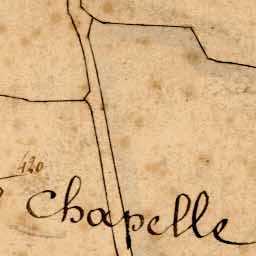 420
chapelle